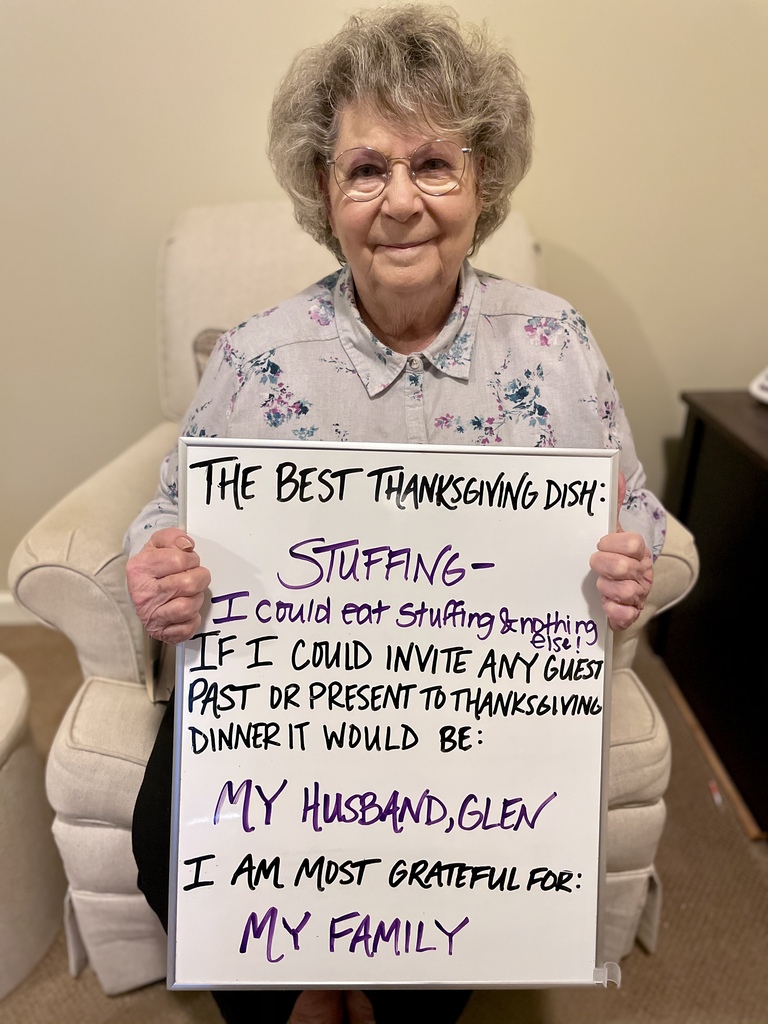 THE BEST THANKSGIVING DISH:
STUFFING-
I could eat stuffing & nothing
else!
IF I COULD INVITE ANY GUEST
PAST OR PRESENT TO THANKSGIVING
DINNER IT WOULD BE:
MY HUSBAND, GLEN
I AM MOST GRATEFUL FOR:
MY FAMILY